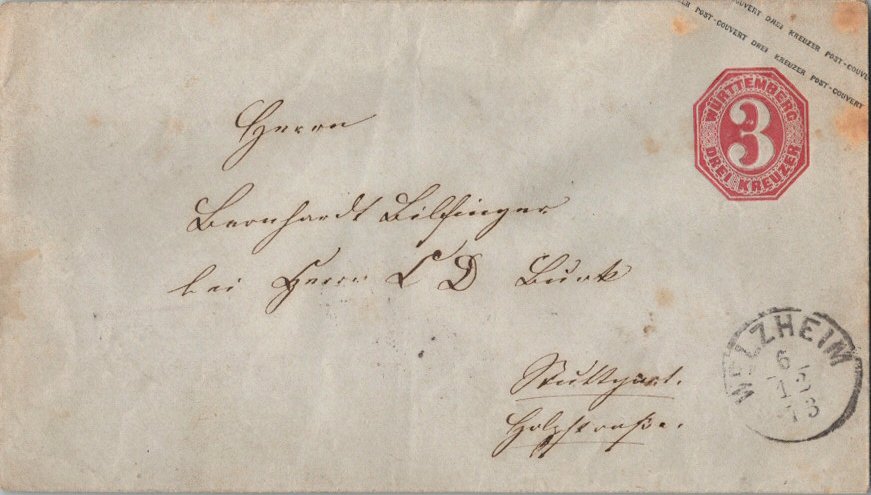 UVERT DREI KREUZER POST-COUVE
ER POST-COUVERT DREI KREUZER POST-COUVERT
WÜRTTEMBERG
3
DREI KREUZER
Herrn
Bernhardt Bilfinger
bei Herrn C D Burk
Stuttgart.
Holzstraße.
WELZHEIM
6